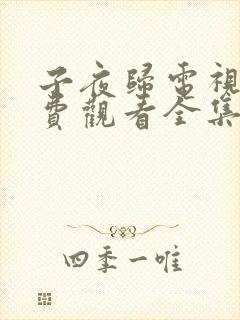 子夜歸電視
費觀看全集
四季一唯